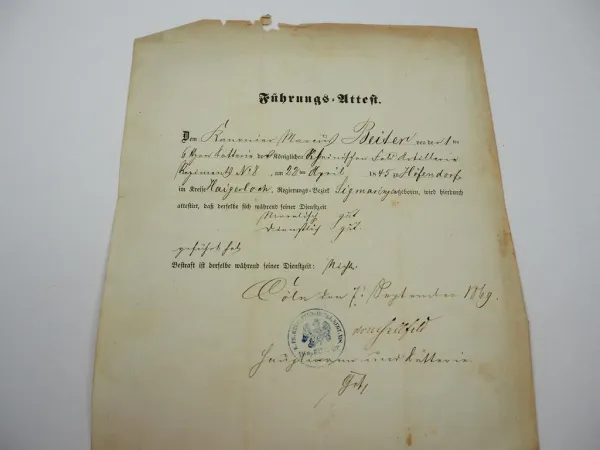 Führungs-Attest.
Dem Kanonier Marcus Beiter von der 1ten
6 ℔gen Batterie des Königlichen Rheinischen Feld Artillerie
Regiments No 8, am 22ten April 1845 zu Höfendorf
im Kreise Haigerloch, Regierungs-Bezirk Sigmaringen geboren, wird hierdurch
attestirt, daß derselbe sich während seiner Dienstzeit
Moralisch gut
Dienstlich gut
geführt hat
Bestraft ist derselbe während seiner Dienstzeit: Nicht.
Cöln den 7. September 1869.
Hauptmann und Batterie